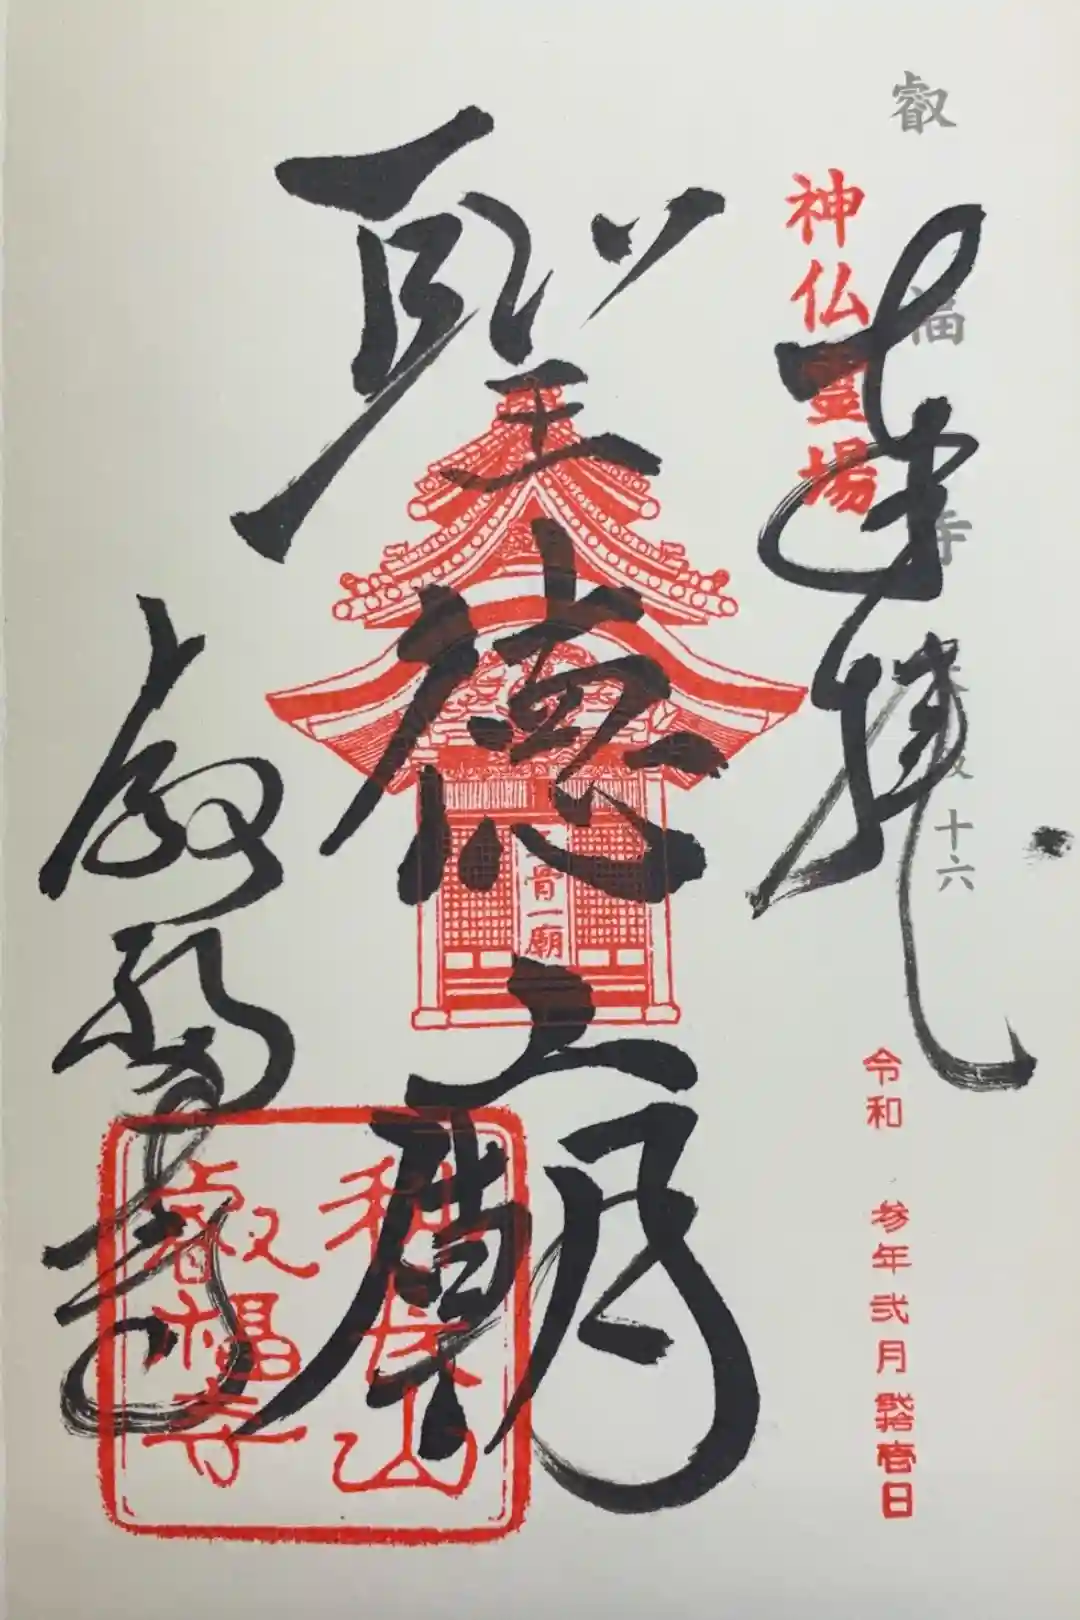 叡福寺 大阪十六
神仏霊場
奉拝
令和 参年弐月弐拾壹日
聖徳廟
骨一廟
叡福寺
科長山
叡福寺